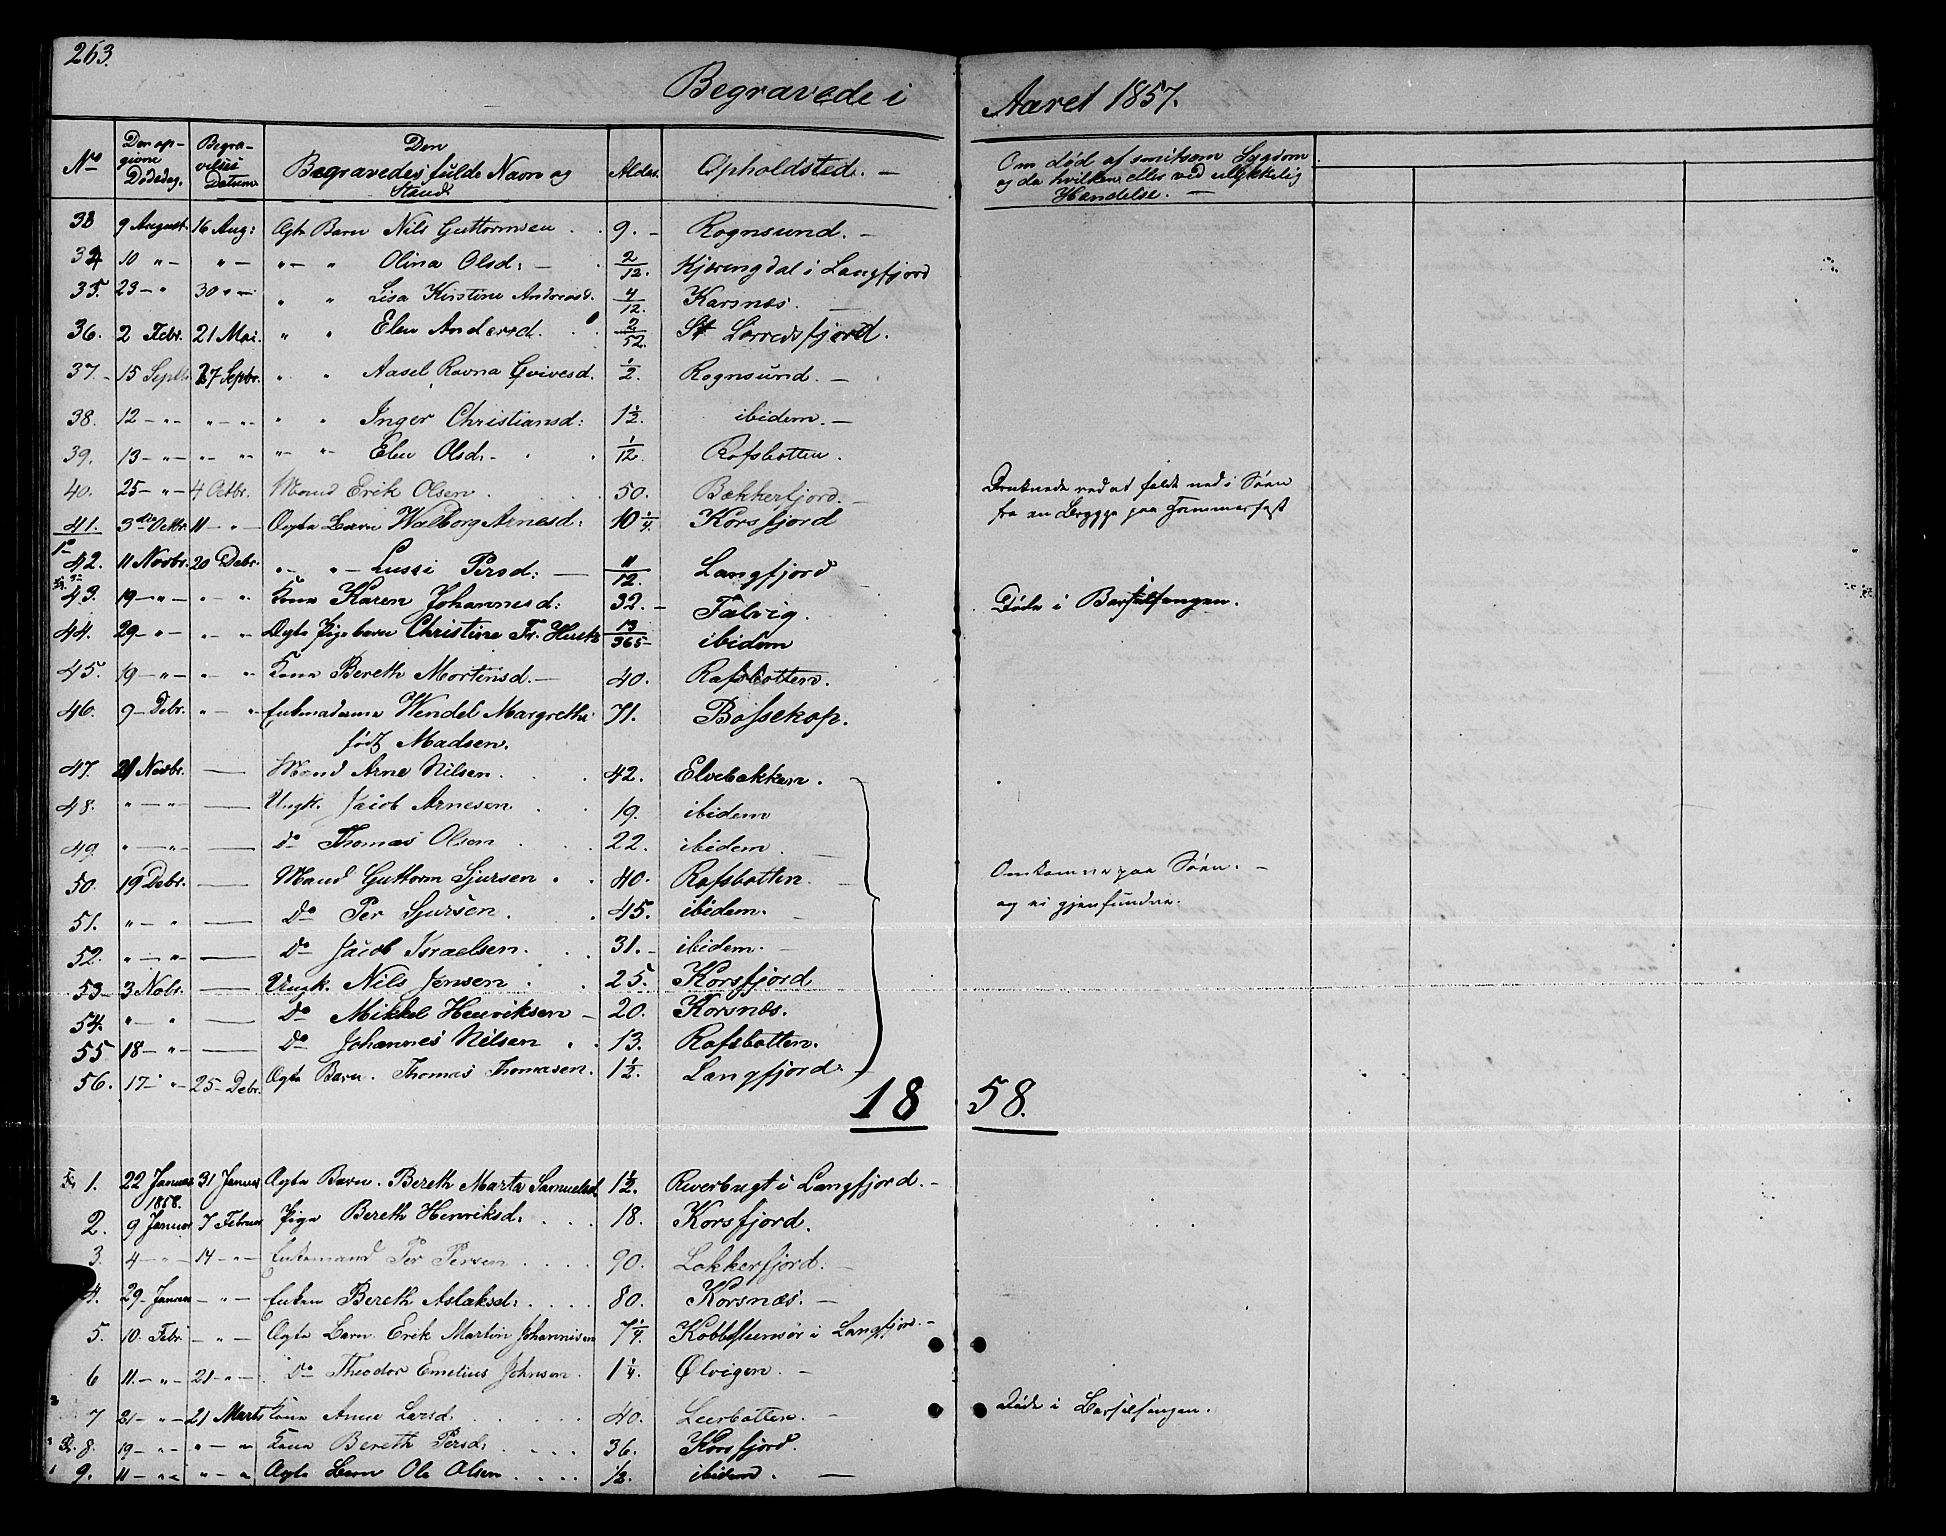 263.
Begravede i Aaret 1857.
No Den opgivne Dødsdag. Begravelses Datum Den Begravedes fulde Navn og Stand Alder. Opholdsted. — Om død af smitsom Sygdom og da hvilken eller ved ulykkelig Hændelse. —
33 9 August. 16 Aug: Ægte Barn Nils Guttormsen 9. — Rognsund. —
34 10 " — " — " — " Olina Olsd: — 2/12. Kjærengdal i Langfjord
35. 23 — " 30 " — " " Lisa Kirstine Andreasd. 4/12. Karsnæs. —
36. 2 Febr. 21 Mai. " " Elen Andersd. 2/52. St Lørredsfjord.
37. — 15 Septbr. 27 Sepbr. " " Aasel Ravna Qvivesd. 1/2. Rognsund. —
38. 12 — " — " — " — " " Inger Christiansd: 1 1/2. ibidem. —
39. 13 — " — " — " — " — " — Elen Olsd: — 1/12. Rafsbotten.
40. 25 — " — 4 Octbr. Mand Erik Olsen 50. Bækkerfjord. — Druknede ved at falde ned i Søen
fra en Brygge paa Hammerfest
41. 3die Octbr. 11 — " — Ægte Barn Walborg Arnesd: 10 1/4. Korsfjord
42. 11 Novbr. 20 Debr. " — " — Lussi Persd: — 11/12. Langfjord
43. 19 — " — " " Kone Karen Johannesd: 32. — Talvig. Døde i Barselsengen.
44. 29 — " — " — " Ægte Pigebarn Christine Fr. Husk 13/365 — ibidem
45. 19 — " — " — " Kone Bereth Mortensd. — 40. Rafsbotten.
46. 9 — Debr. " — " Enkemadame Wendel Margrethe 71. Bossekop.
født Madsen.
47. 21 Novbr. — Mand Arne Nilsen 42. Elvebakken.
48. " — " — — Ungk. Jacob Arnesen 19. ibidem
49 " — " — — Do Thomas Olsen 22. ibidem.
50. 19 Debr. — Mand Guttorm Sjursen 40. Rafsbotten. Omkomne paa Søen. —
51. " — " — Do Per Sjursen 45. ibidem. og ei gjenfundne.
52. " — " — — Do Jacob Israelsen 31. — ibidem. —
53 — 3 Nobr. — Ungk. Nils Jensen 25. Korsfjord
54. " — " — Do Mikkel Henriksen — 20. Korsnæs.
55 18 — " — — Do Johannes Nilsen 13. Rafsbotten.
56. 17 — " — 25 — Debr. Ægte Barn. Thomas Thomasen. 1 1/2. Langfjord. —
18 58.
1. 22 Januar 1858. 31 Januar Ægte Barn. Bereth Marta Samuelsd. 1 1/2. Riverbugt i Langfjord. —
2. 9 Januar 7 Februar Pige Bereth Henriksd. 18. Korsfjord.
3. 4 — " — 14 — " — Enkemand Per Persen 90. Lakkerfjord. —
4. 29 — Januar — " — Enken Bereth Aslaksd: 80. Korsnæs. —
5. 10. Febr. — " — Ægte Barn Erik Martin Johannesen 7 1/4. Kobbesteensør i Langfjor. —
6 11. — " — 21 — " — Do Theodor Emelius Johnsen. 1 1/4. Ølvigen. —
7 21 — " — 21 Marts Kone Anne Larsd. 40. Leerbotten. — Døde i Barselsengen.
8. 19 — " — " — " Kone Bereth Persd: 36. Korsfjord.
9. 11 — " — " — " Ægte Barn Ole Olsen 1/2. ibidem. —